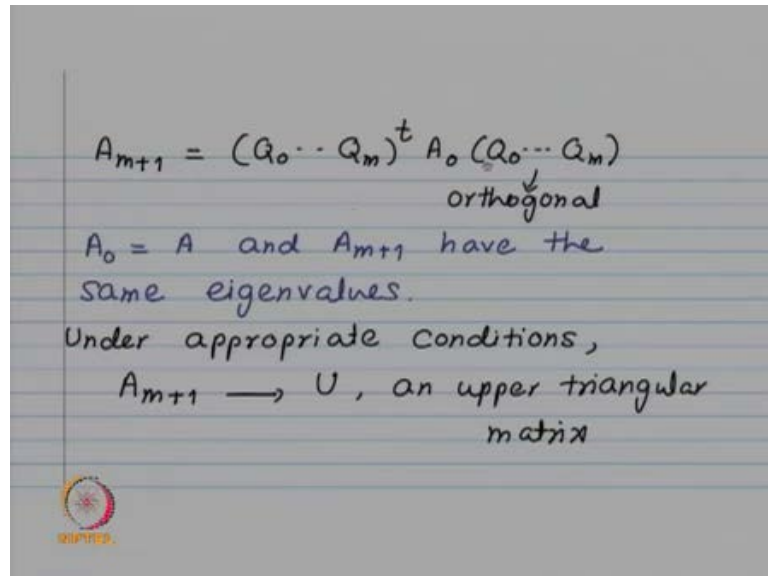 A_{m+1} = (Q_0 ·· Q_m)^t A_0 (Q_0 ··· Q_m)
orthogonal
A_0 = A and A_{m+1} have the
same eigenvalues.
Under appropriate conditions,
A_{m+1} → U, an upper triangular
matrix